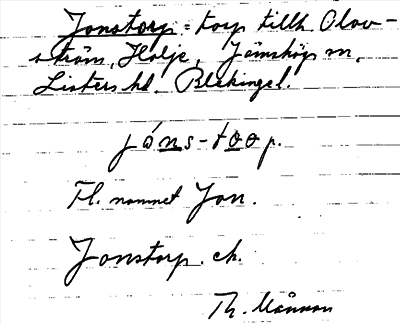 Jonstorp = torp tillh. Olov-
ström, Holje, Jämshögs sn,
Listers hd. Blekinge l.
jóns-toop.
Fl. namnet Jon.
Jonstorp. ch.
Th.